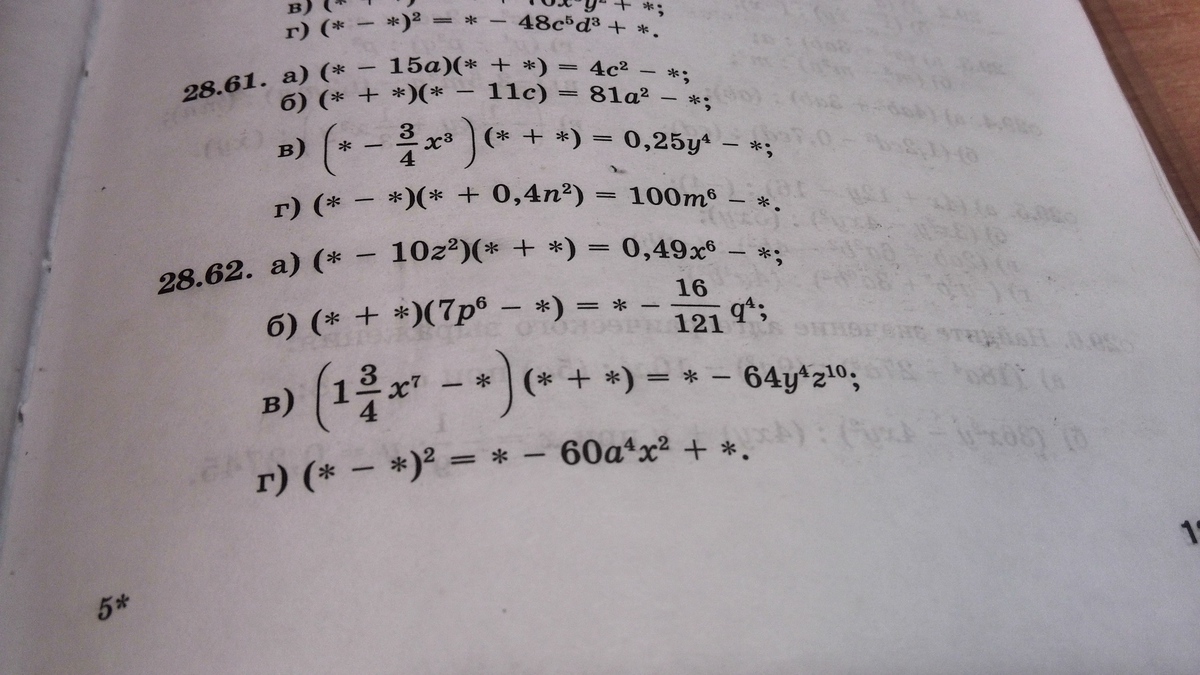 г) (* − *)² = * − 48c⁵d³ + *.
28.61. а) (* − 15a)(* + *) = 4c² − *;
б) (* + *)(* − 11c) = 81a² − *;
в) (* − 3/4 x³)(* + *) = 0,25y⁴ − *;
г) (* − *)(* + 0,4n²) = 100m⁶ − *.
28.62. а) (* − 10z²)(* + *) = 0,49x⁶ − *;
б) (* + *)(7p⁶ − *) = * − 16/121 q⁴;
в) (1 3/4 x⁷ − *)(* + *) = * − 64y⁴z¹⁰;
г) (* − *)² = * − 60a⁴x² + *.
5*